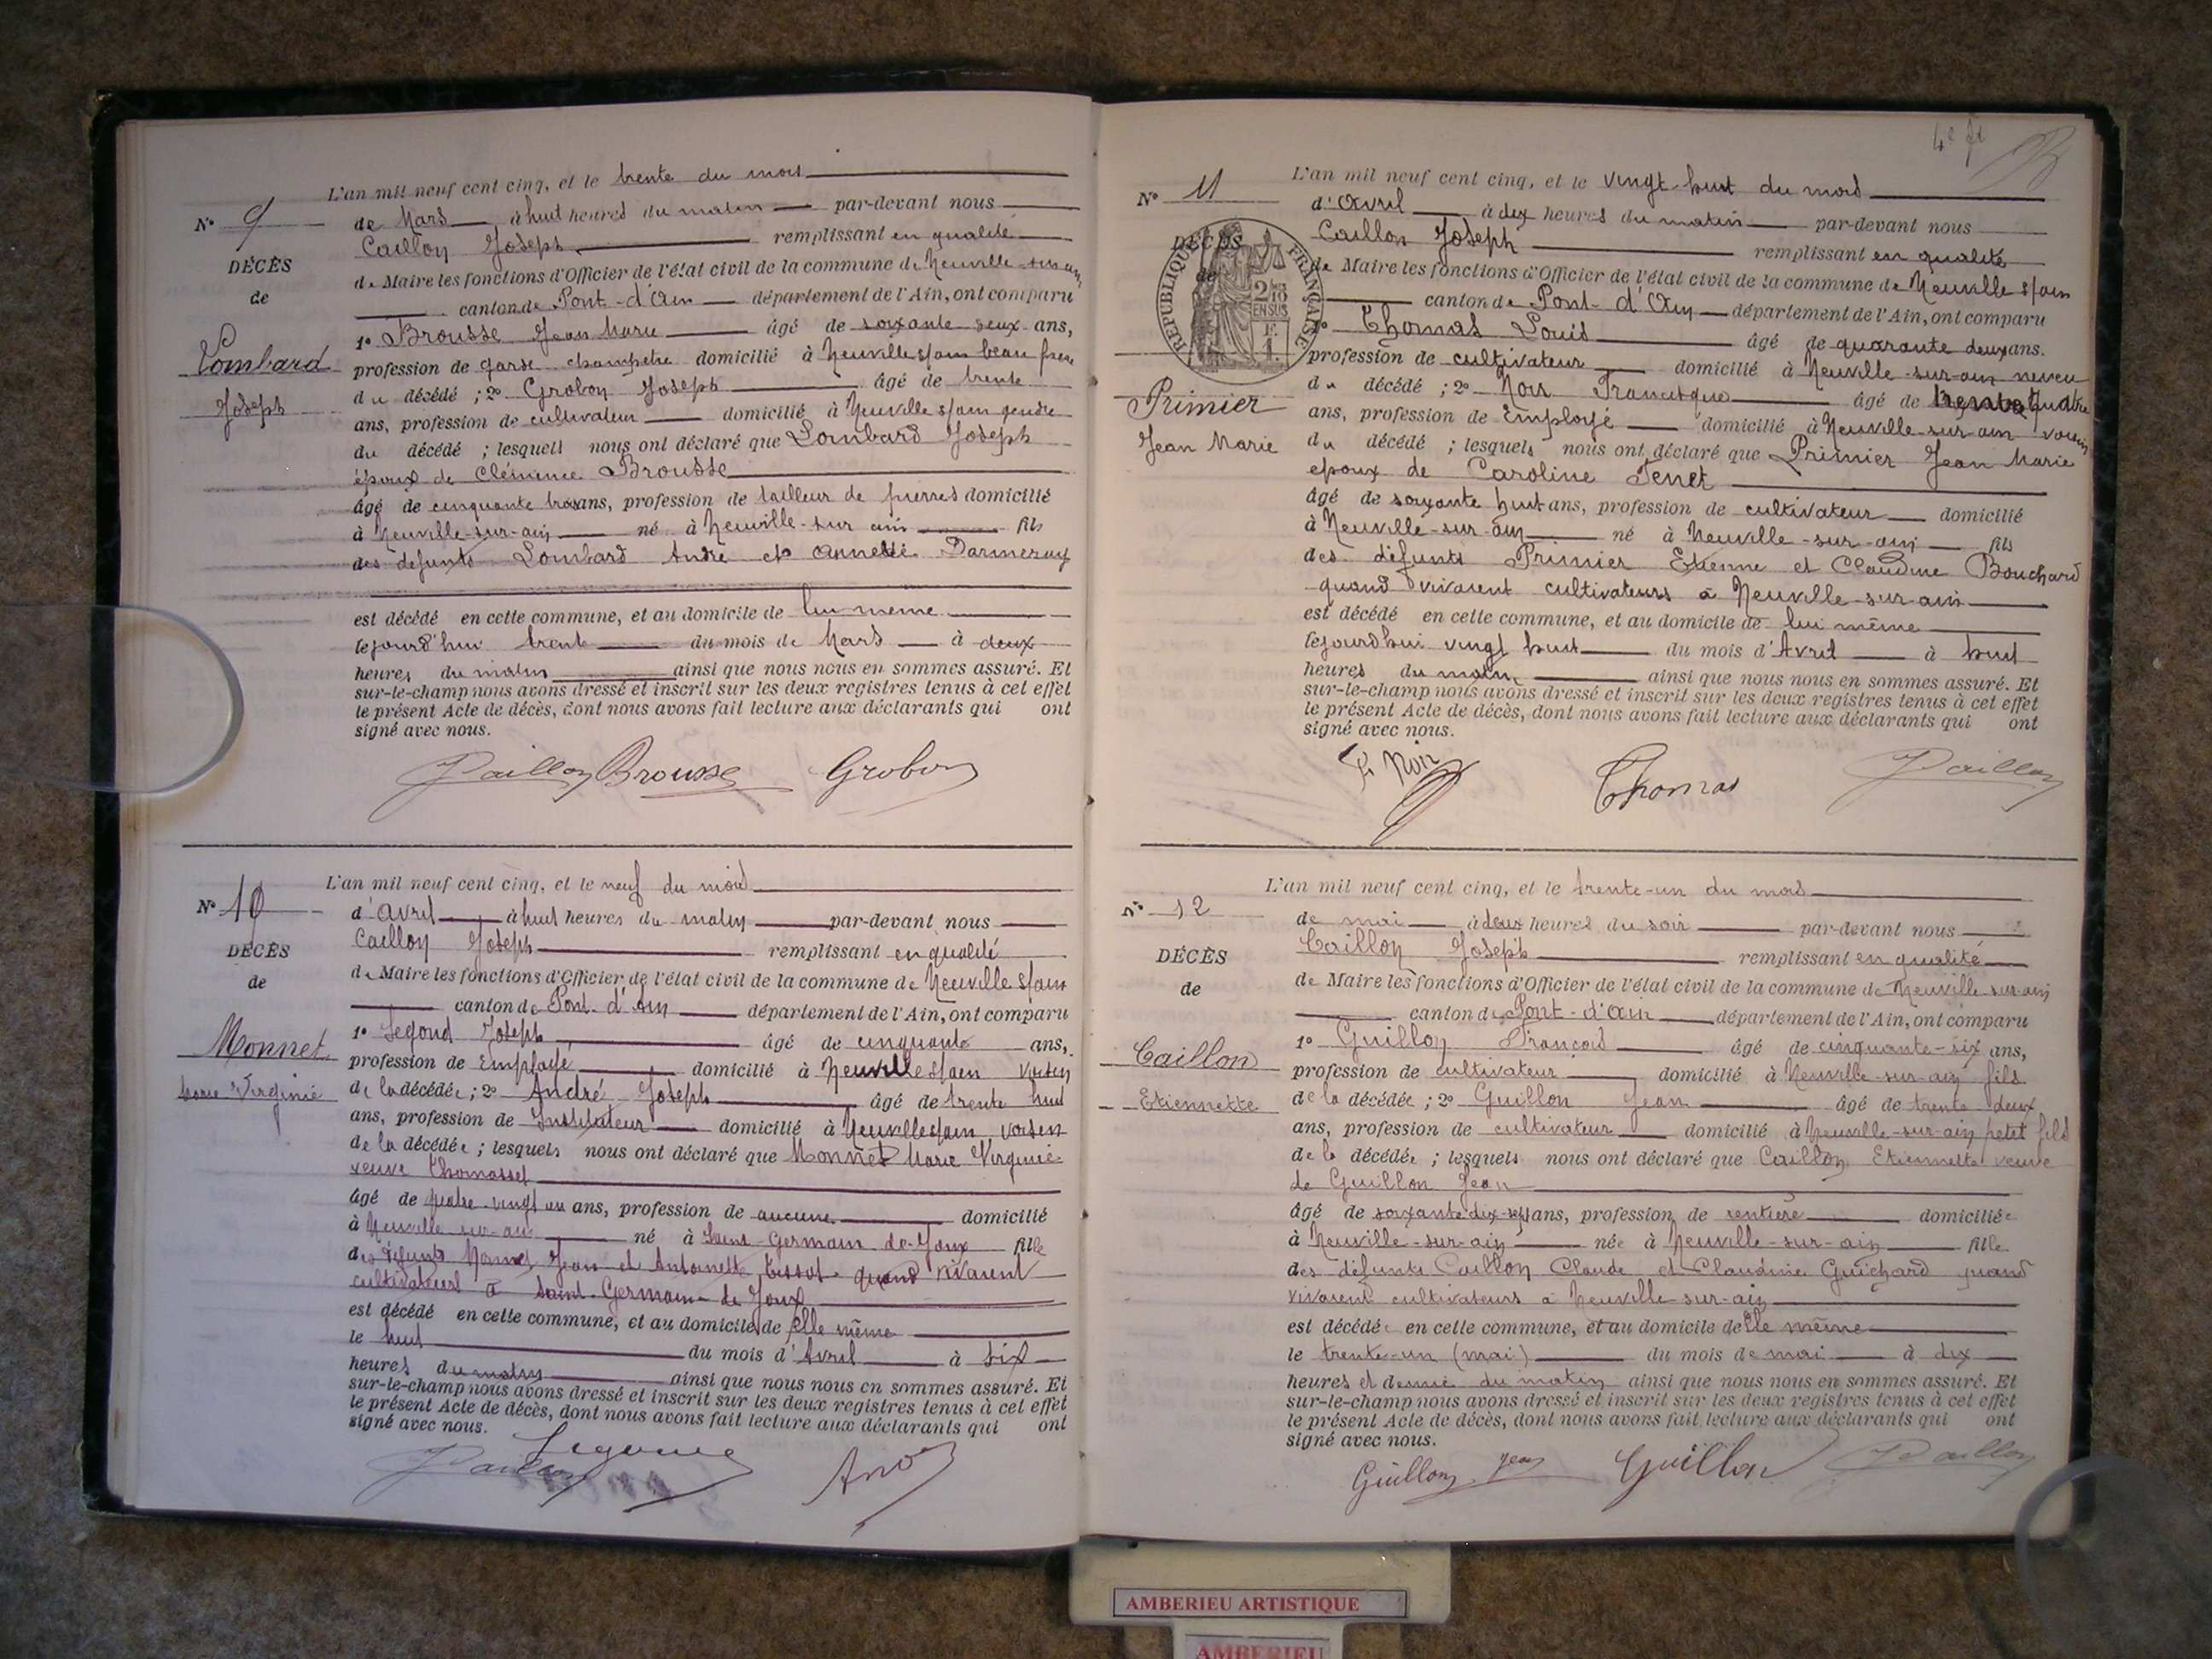 L'an mil neuf cent cinq, et le trente du mois
N° 9
de Mars à huit heures du matin par-devant nous
Caillon Joseph remplissant en qualité
DÉCÈS
de Maire les fonctions d'Officier de l'état civil de la commune de Neuville-sur-ain
de
canton de Pont-d'Ain département de l'Ain, ont comparu
1° Brousse Jean Marie âgé de soixante deux ans,
Lombard
profession de garde champetre domicilié à Neuville s/ain beau frere
Joseph
du décédé ; 2° Grobon Joseph âgé de trente
ans, profession de cultivateur domicilié à Neuville s/ain gendre
du décédé ; lesquels nous ont déclaré que Lombard Joseph
époux de Clémence Brousse
âgé de cinquante trois ans, profession de tailleur de pierres domicilié
à Neuville-sur-ain né à Neuville-sur ain fils
des défunts Lombard André et Annette
est décédé en cette commune, et au domicile de lui même
lejourd'hui trente du mois de Mars à deux
heures du matin ainsi que nous nous en sommes assuré. Et
sur-le-champ nous avons dressé et inscrit sur les deux registres tenus à cet effet
le présent Acte de décès, dont nous avons fait lecture aux déclarants qui ont
signé avec nous.
JCaillon Brousse Grobon
L'an mil neuf cent cinq, et le neuf du mois
N° 10
d'Avril à huit heures du matin par-devant nous
Caillon Joseph remplissant en qualité
DÉCÈS
de Maire les fonctions d'Officier de l'état civil de la commune de Neuville s/ain
de
canton de Pont-d'Ain département de l'Ain, ont comparu
1° Legond Joseph âgé de cinquante ans,
Monnet
profession de Employé domicilié à Neuville s/ain voisin
Marie Virginie
de la décédée ; 2° André Joseph âgé de trente huit
ans, profession de Instituteur domicilié à Neuville s/ain voisin
de la décédée ; lesquels nous ont déclaré que Monnet Marie Virginie
veuve Thomasset
âgé de quatre-vingt un ans, profession de aucune domicilié
à Neuville-sur-ain né à Saint-Germain-de-Joux fille
des défunts Monnet Jean et Antoinette Tissot quand vivaient
cultivateurs à Saint-Germain-de Joux
est décédé en cette commune, et au domicile de elle même
le huit du mois d'Avril à six
heures du matin ainsi que nous nous en sommes assuré. Et
sur-le-champ nous avons dressé et inscrit sur les deux registres tenus à cet effet
le présent Acte de décès, dont nous avons fait lecture aux déclarants qui ont
signé avec nous.
JCaillon
4e ft
L'an mil neuf cent cinq, et le vingt-huit du mois
N° 11
d'Avril à dix heures du matin par-devant nous
Caillon Joseph remplissant en qualité
DÉCÈS
de
RÉPUBLIQUE FRANÇAISE
2/10 EN SUS
F. 1.
de Maire les fonctions d'Officier de l'état civil de la commune de Neuville s/ain
canton de Pont-d'Ain département de l'Ain, ont comparu
1° Thomas Louis âgé de quarante deux ans.
profession de cultivateur domicilié à Neuville-sur-ain neveu
Primier
Jean Marie
du décédé ; 2° Noir Francisque âgé de trente quatre
ans, profession de Employé domicilié à Neuville-sur-ain voisin
du décédé ; lesquels nous ont déclaré que Primier Jean Marie
époux de Caroline Tenet
âgé de soixante huit ans, profession de cultivateur domicilié
à Neuville-sur-ain né à Neuville-sur-ain fils
des défunts Primier Etienne et Claudine Bouchard
quand vivaient cultivateurs à Neuville-sur-ain
est décédé en cette commune, et au domicile de lui même
lejourd'hui vingt huit du mois d'Avril à huit
heures du matin ainsi que nous nous en sommes assuré. Et
sur-le-champ nous avons dressé et inscrit sur les deux registres tenus à cet effet
le présent Acte de décès, dont nous avons fait lecture aux déclarants qui ont
signé avec nous.
F. Noir Thomas JCaillon
L'an mil neuf cent cinq, et le trente-un du mois
N° 12
de mai à deux heures du soir par-devant nous
Caillon Joseph remplissant en qualité
DÉCÈS
de Maire les fonctions d'Officier de l'état civil de la commune de Neuville-sur-ain
de
canton de Pont-d'ain département de l'Ain, ont comparu
1° Guillon François âgé de cinquante-six ans,
Caillon
profession de cultivateur domicilié à Neuville-sur-ain fils
Etiennette
de la décédée ; 2° Guillon Jean âgé de trente deux
ans, profession de cultivateur domicilié à Neuville-sur-ain petit fils
de la décédée ; lesquels nous ont déclaré que Caillon Etiennette veuve
de Guillon Jean
âgé de soixante dix-sept ans, profession de rentière domiciliée
à Neuville-sur-ain née à Neuville-sur-ain fille
des défunts Caillon Claude et Claudine Guichard quand
vivaient cultivateurs à Neuville-sur-ain
est décédée en cette commune, et au domicile de elle même
le trente-un (mai) du mois de mai à dix
heures et demie du matin ainsi que nous nous en sommes assuré. Et
sur-le-champ nous avons dressé et inscrit sur les deux registres tenus à cet effet
le présent Acte de décès, dont nous avons fait lecture aux déclarants qui ont
signé avec nous.
Guillon Jean Guillon JCaillon
AMBERIEU ARTISTIQUE
AMBERIEU